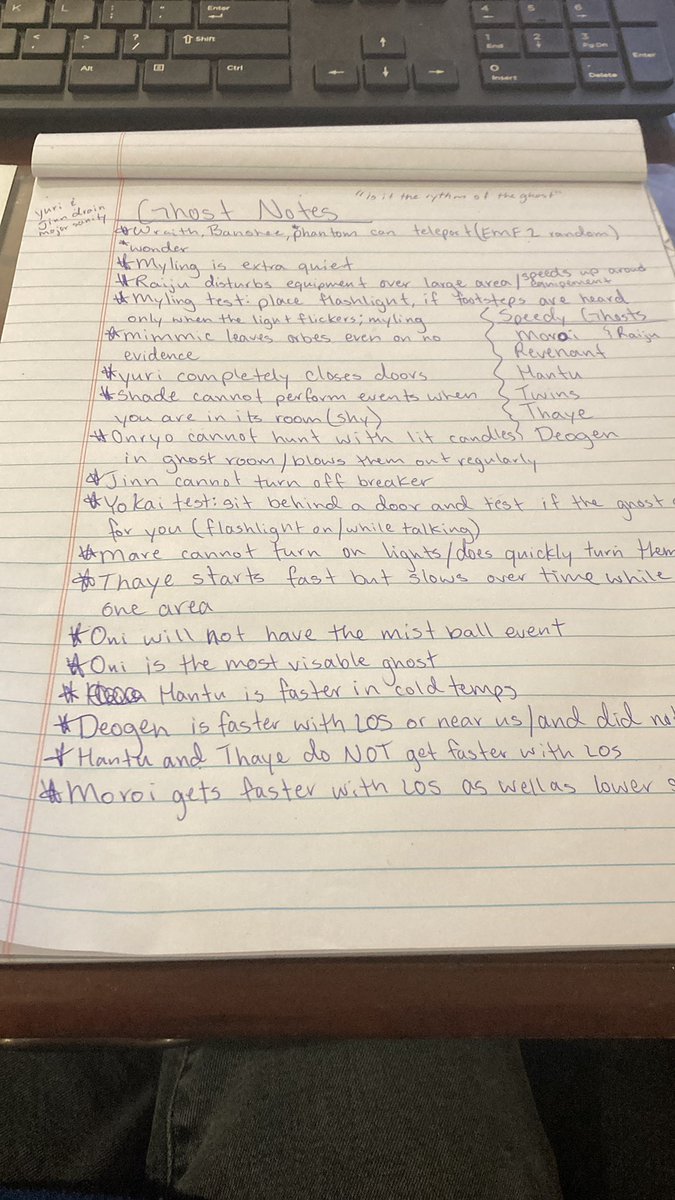 K L : " Enter
< , > . ? / Shift
Alt Ctrl
4 5 6
1 End 2 3 Pg Dn Enter
0 Insert . Delete
"is it the rythm of the ghost"
yuri &
Jinn drain
major sanity
Ghost Notes
*Wraith, Banshee, *phantom can teleport (EMF 2 random)
*wonder
*Myling is extra quiet
*Raiju disturbs equipment over large area/speeds up
*Myling test: place flashlight, if footsteps are heard
only when the light flickers; myling
*mimmic leaves orbes even on no
evidence
*yuri completely closes doors
*Shade cannot perform events when
you are in its room (shy)
*Onryo cannot hunt with lit candles
in ghost room/blows them out regularly
Speedy Ghosts
Moroi & Raiju
Revenant
Hantu
Twins
Thaye
Deogen
*Jinn cannot turn off breaker
*Yokai test: sit behind a door and test if the ghost
for you (flashlight on/while talking)
*Mare cannot turn on lights/does quickly turn them
*Thaye starts fast but slows over time while
one area
*Oni will not have the mist ball event
*Oni is the most visable ghost
* Hantu is faster in cold temps
*Deogen is faster with LOS or near us/and did
*Hantu and Thaye do NOT get faster with LOS
*Moroi gets faster with LOS as well as lower